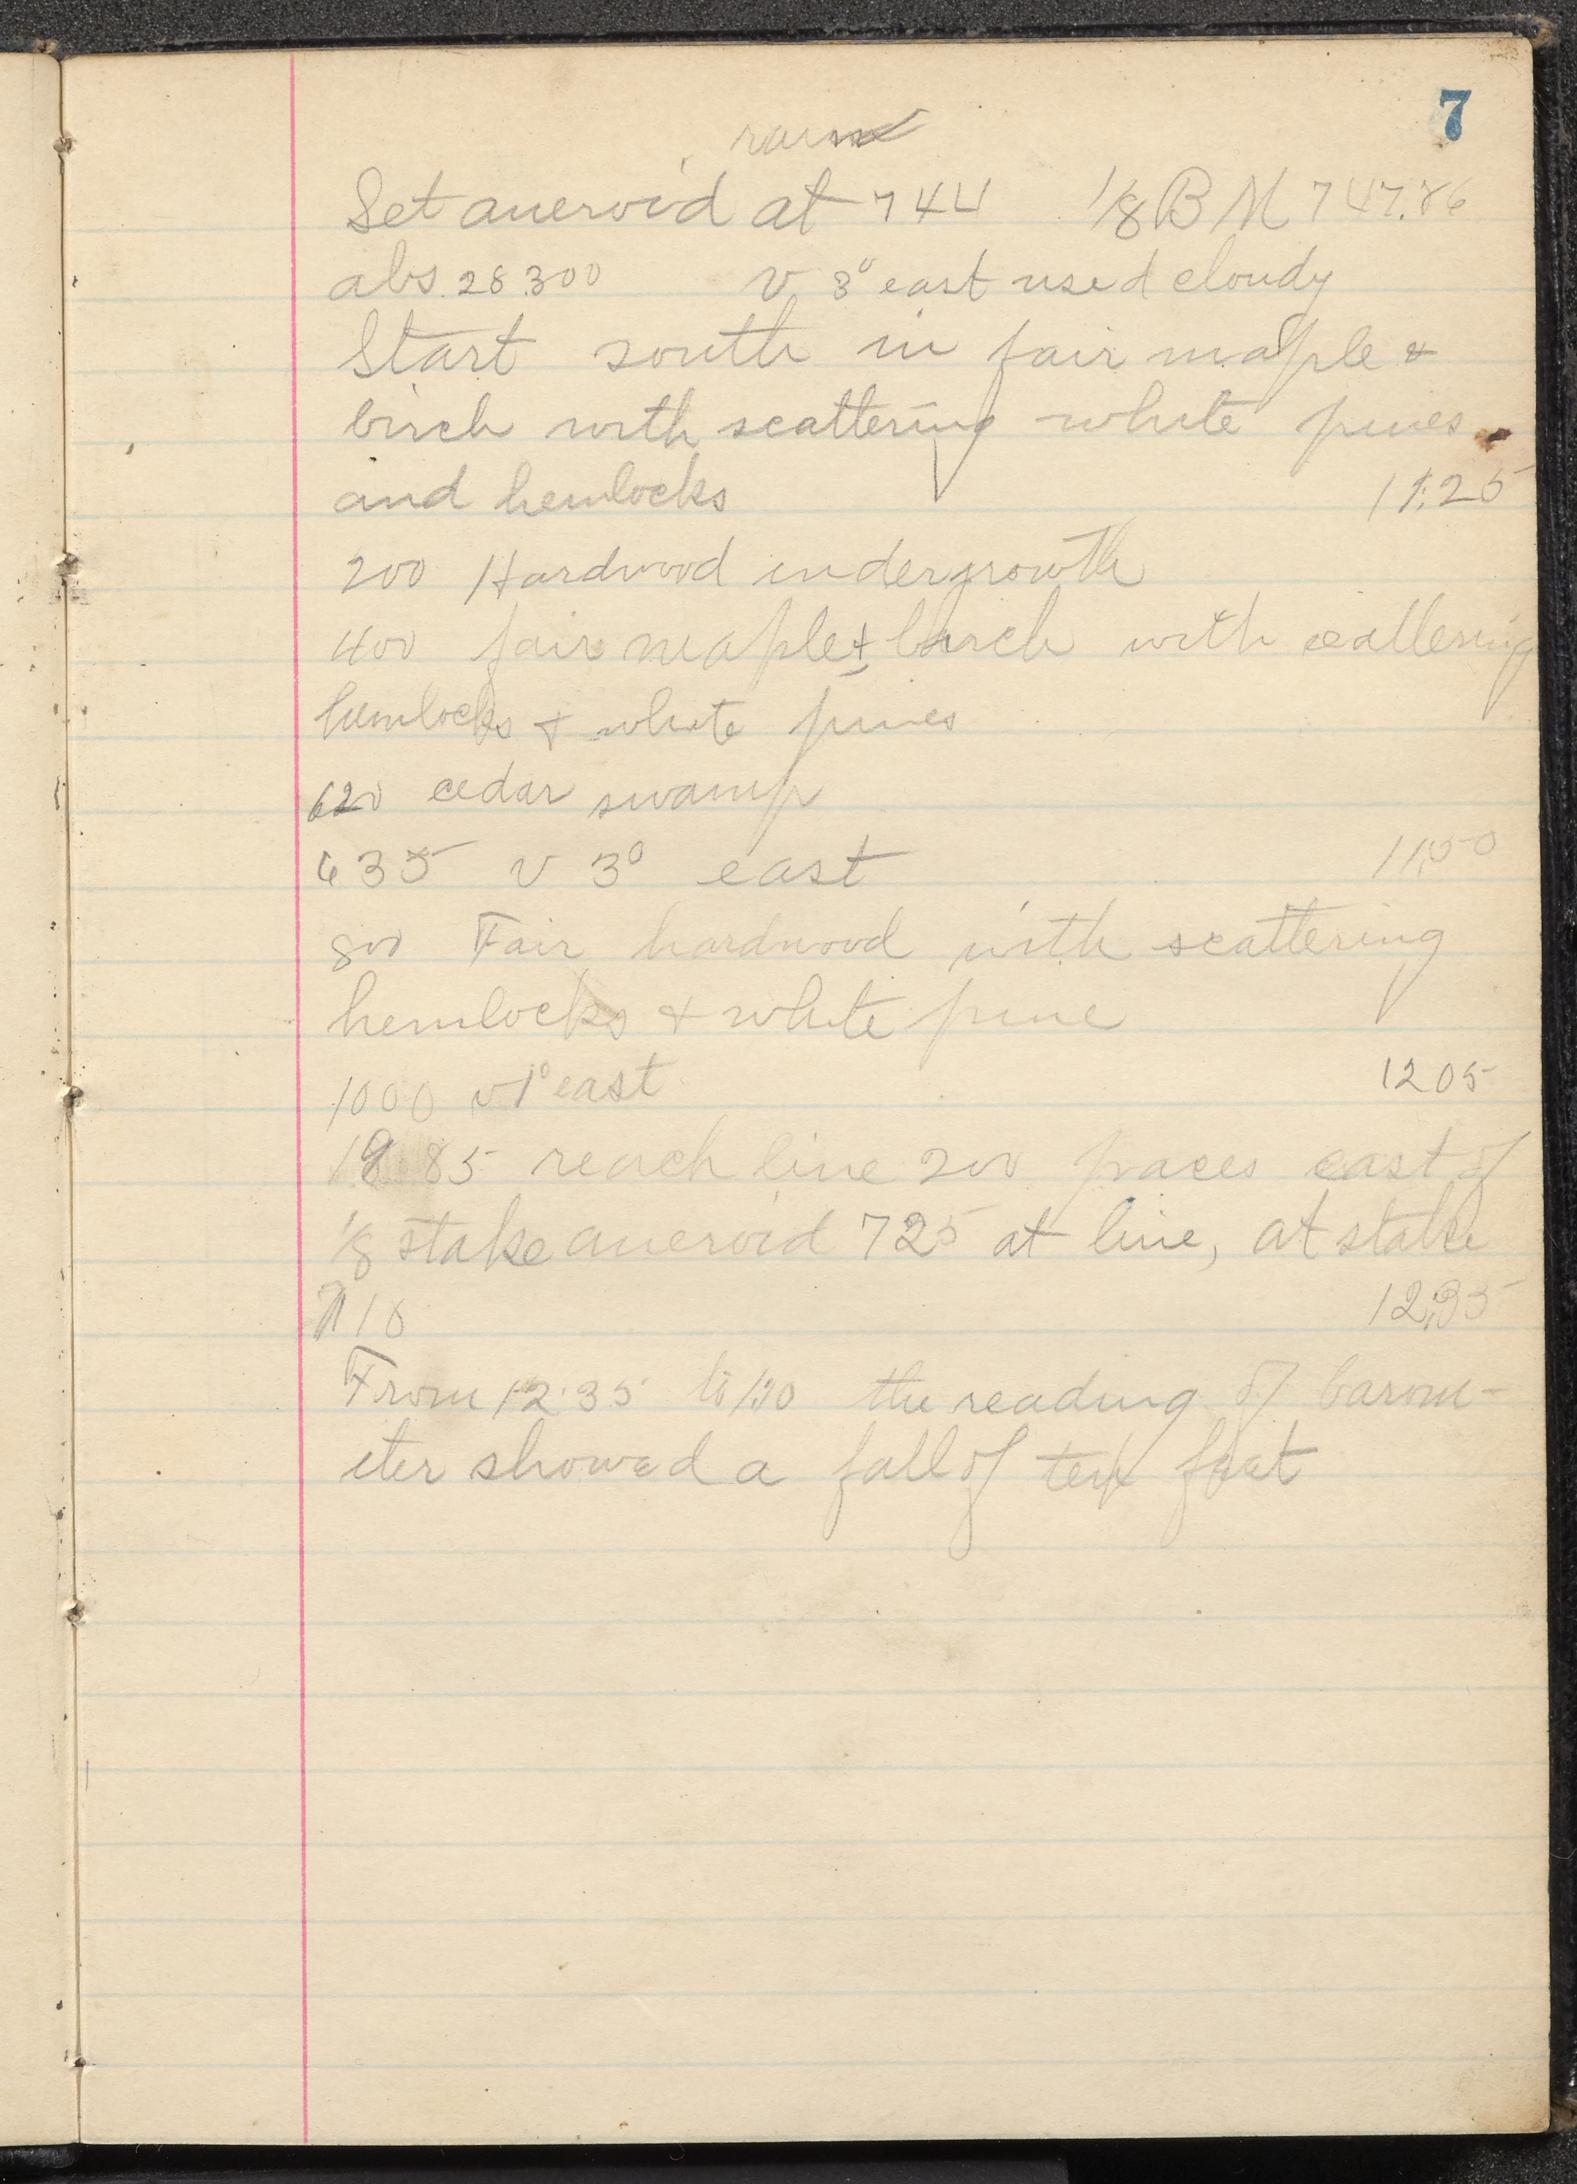 7
rain
Set aneroid at 744 1/8 B M 747.86
abs. 28.300 V. 3° east used cloudy
Start south in fair maple &
birch with scattering white pines
and hemlocks 11:25
200 Hardwood undergrowth
400 fair maple & birch with scattering
hemlocks & white pines
620 cedar swamp
635 v 3° east 11,50
800 Fair hardwood with scattering
hemlocks & white pine
1000 v 1° east 1205
1985 reach line 200 paces east of
1/8 stake aneroid 725 at line, at stake
718 12,35
From 12:35 to 1:10 the reading of barom-
eter showed a fall of ten feet